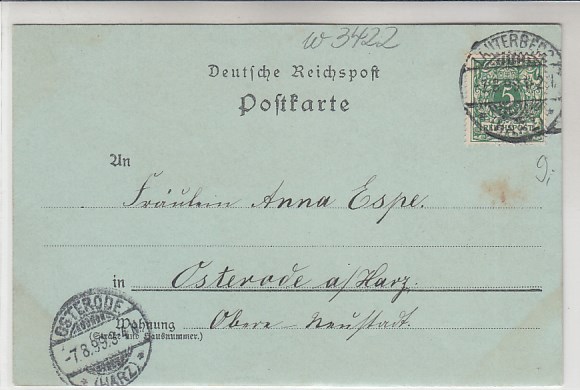 w 3422
LAUTERBERG
Deutsche Reichspost
Postkarte
5
REICHSPOST
9,-
An
Fräulein Anna Espe.
in Osterode a/Harz.
Wohnung Obere-Neustadt.
(Straße und Hausnummer.)
OSTERODE
7.8.99.
* (HARZ) *